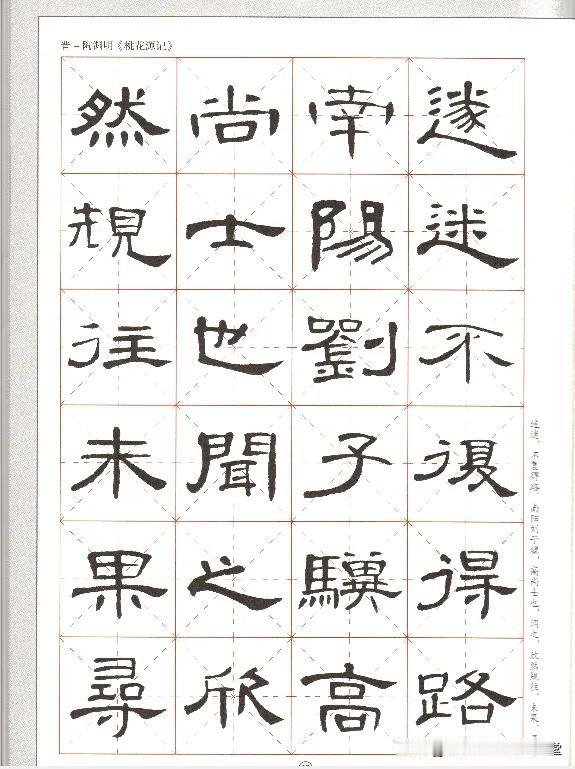 晋－陶渊明《桃花源记》
遂迷不復得路
南陽劉子驥高
尚士也聞之欣
然規往未果尋
遂迷，不复得路。南阳刘子骥，高尚士也，闻之，欣然规往。未果，